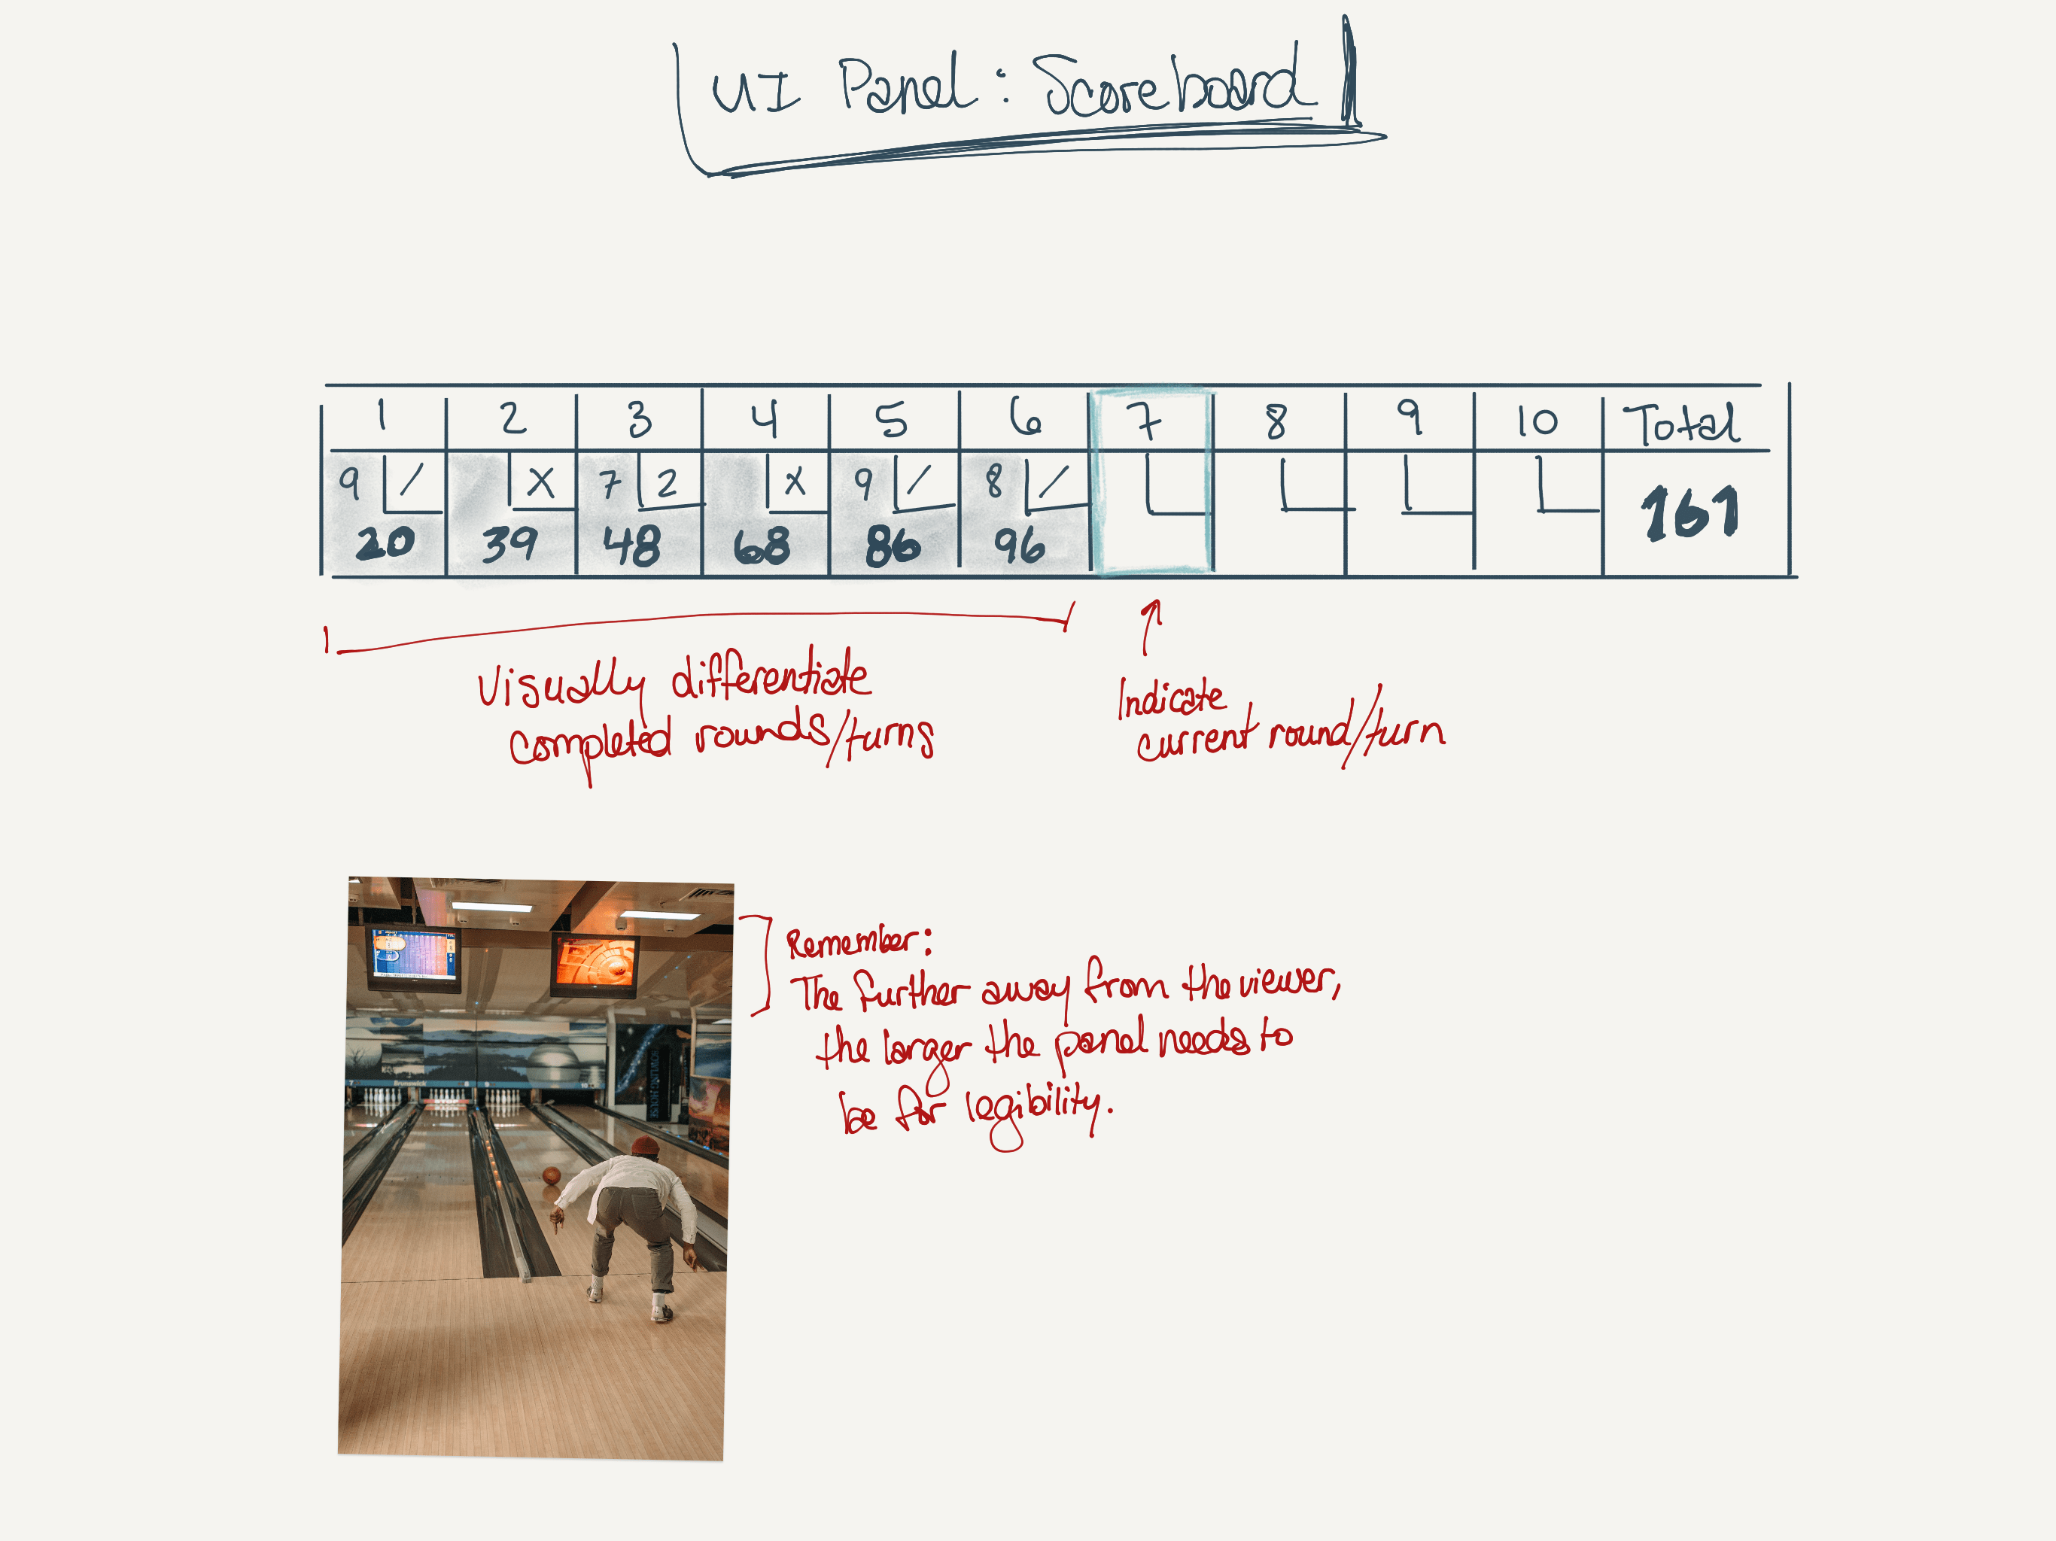 UI Panel: Scoreboard
1 2 3 4 5 6 7 8 9 10 Total
9 / X 7 2 X 9 / 8 /
20 39 48 68 86 96 161
Visually differentiate
completed rounds/turns
Indicate
current round/turn
Remember:
The further away from the viewer,
the larger the panel needs to
be for legibility.